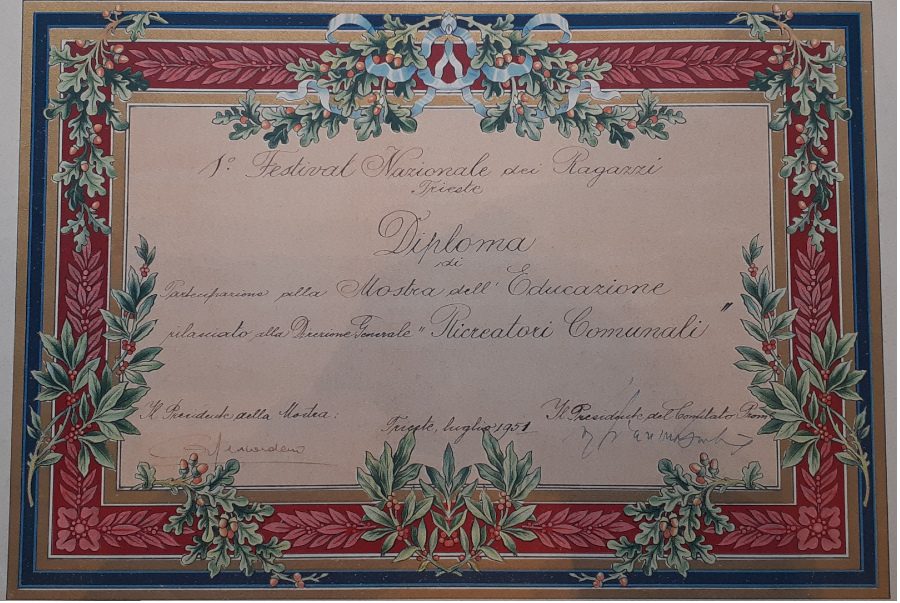 1º Festival Nazionale dei Ragazzi
Trieste
Diploma
di
Partecipazione alla Mostra dell' Educazione
rilasciato alla Direzione Generale "Ricreatori Comunali"
Il Presidente della Mostra:
Trieste, luglio 1951
Il Presidente del Comitato